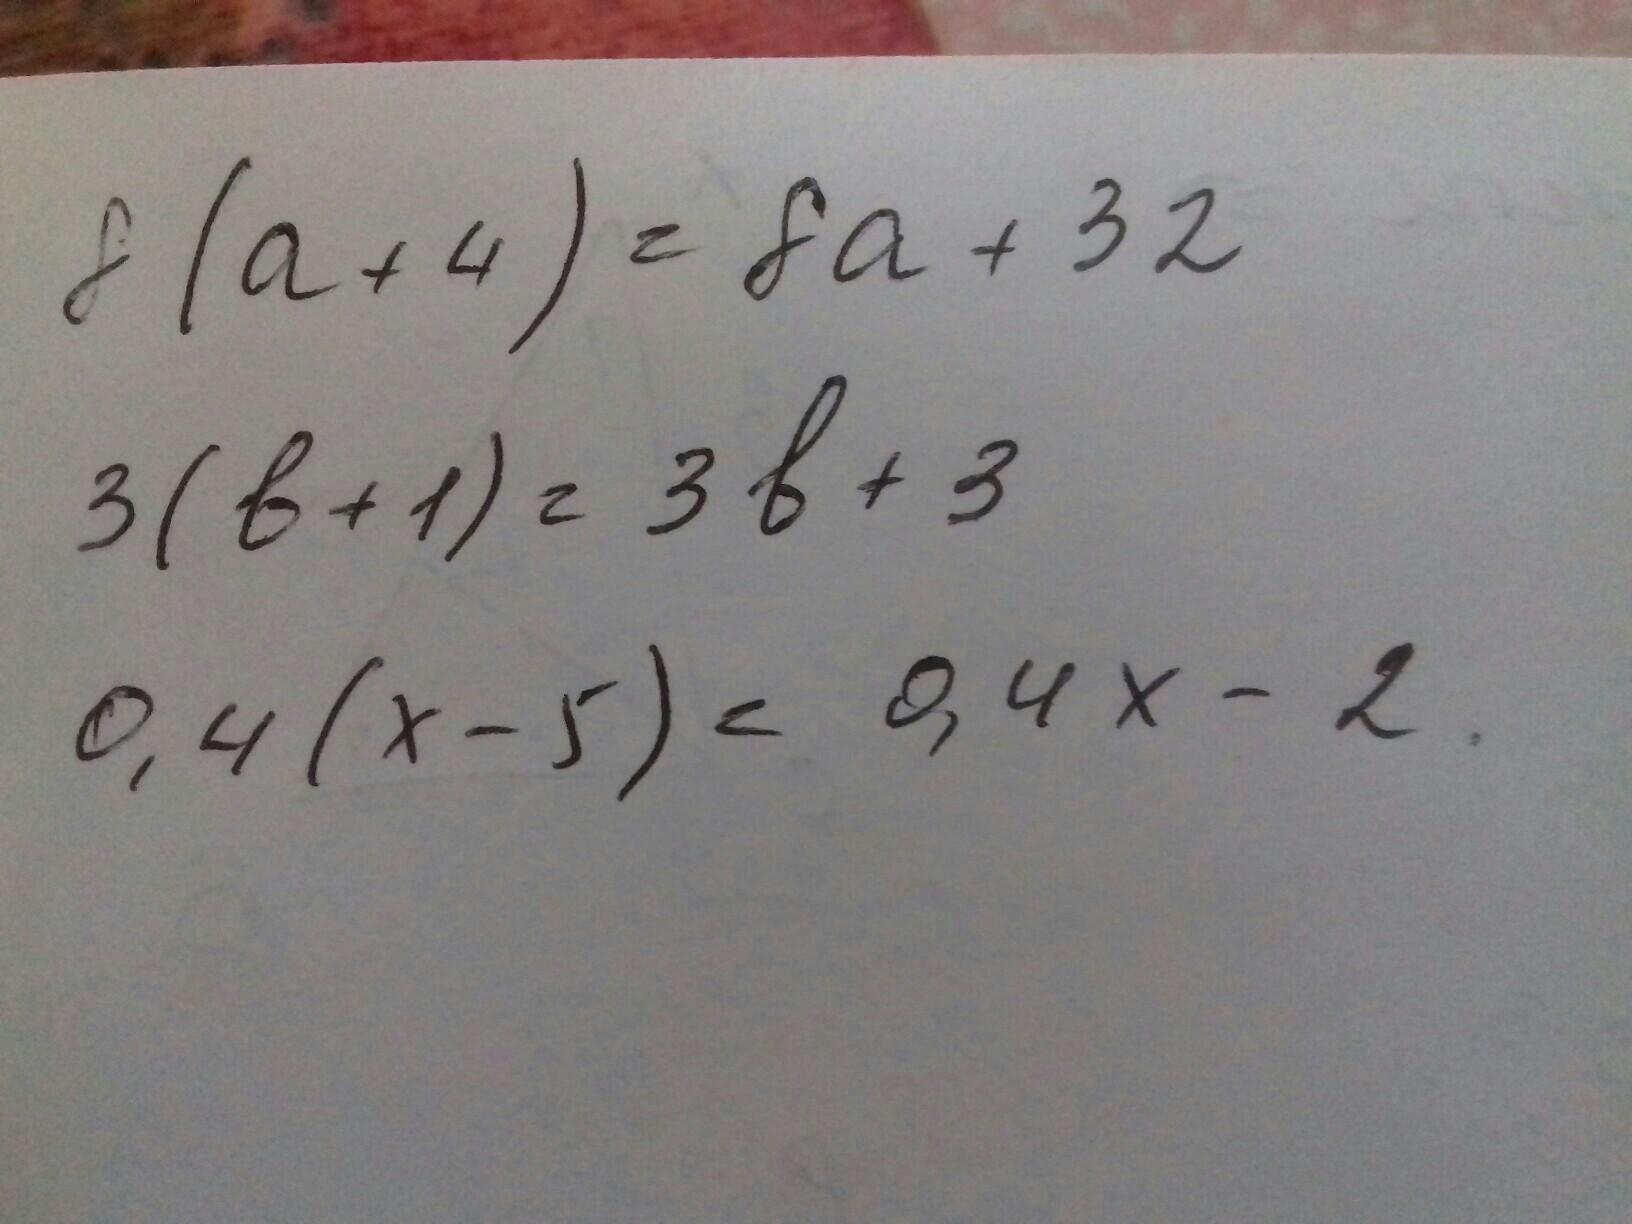 8(a+4)=8a+32
3(b+1)=3b+3
0,4(x-5)=0,4x-2.